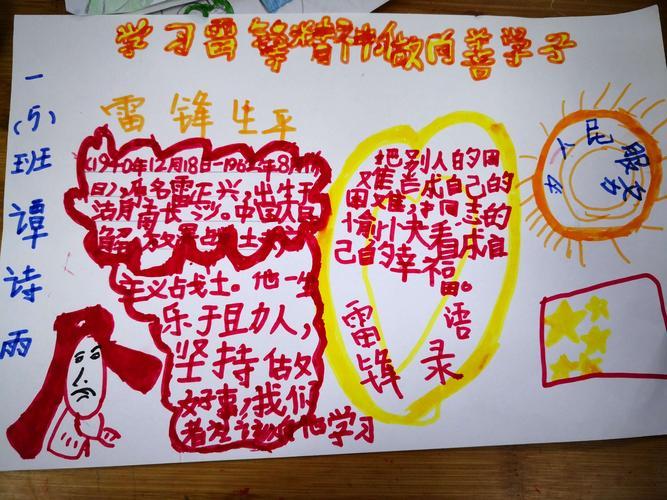 学习雷锋精神做向善学子
一(5)班谭诗雨
雷锋生平
(1940年12月18日-1962年8月
日),原名雷正兴,出生于
湖南长沙。中国人
解放军战士
主义战士。他一生
乐于助人,
坚持做
好事,我们
学习
把别人的困
难当成自己的
困难,把同志的
愉快看成自
己的幸福。
雷锋
语录
为人民服务